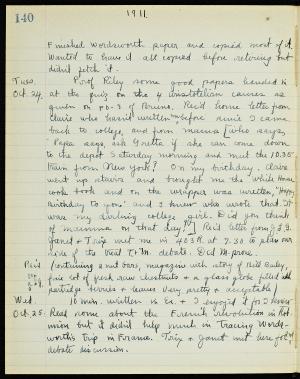 140
1911
Finished Wordsworth paper and copied most of it.
Wanted to have it all copied before retiring but
didn't fetch it.
Tues. Prof Riley some good papers handed in
Oct. 24. at the quiz on the 4 Aristotelian causes as
given on pp. Rec'd home letter from
Claire who hasn't written me before since I came
back to college, and from mama (who says,
"Papa says, ask Gretta if she can come down
to the depot Saturday morning and meet the 10.35
train from New York? On my birthday, Claire
went up stairs and brought me the White House
cook book and on the wrapper was written, "Happy
Birthday to you" and I knew who wrote that. It
was my darling college girl. Did you think
of mamma on that day?") Rec'd letter from
Janet & Trix met me in 403 R. at 7.30 to plan our
side of the debate. Did
Rec'd containing and bars, magazine with story of
fair lot of fresh, raw chestnuts & a glass globe filled with
partridge berries & leaves very pretty & acceptable)
Wed. 10 min. written in Ec. & I enjoyed it for I knew it
Oct. 25. Read some about the French revolution in Rob-
inson but it didn't help much in Tracing Words-
worth's trip in France. Trix & Janet met here for
debate discussion.